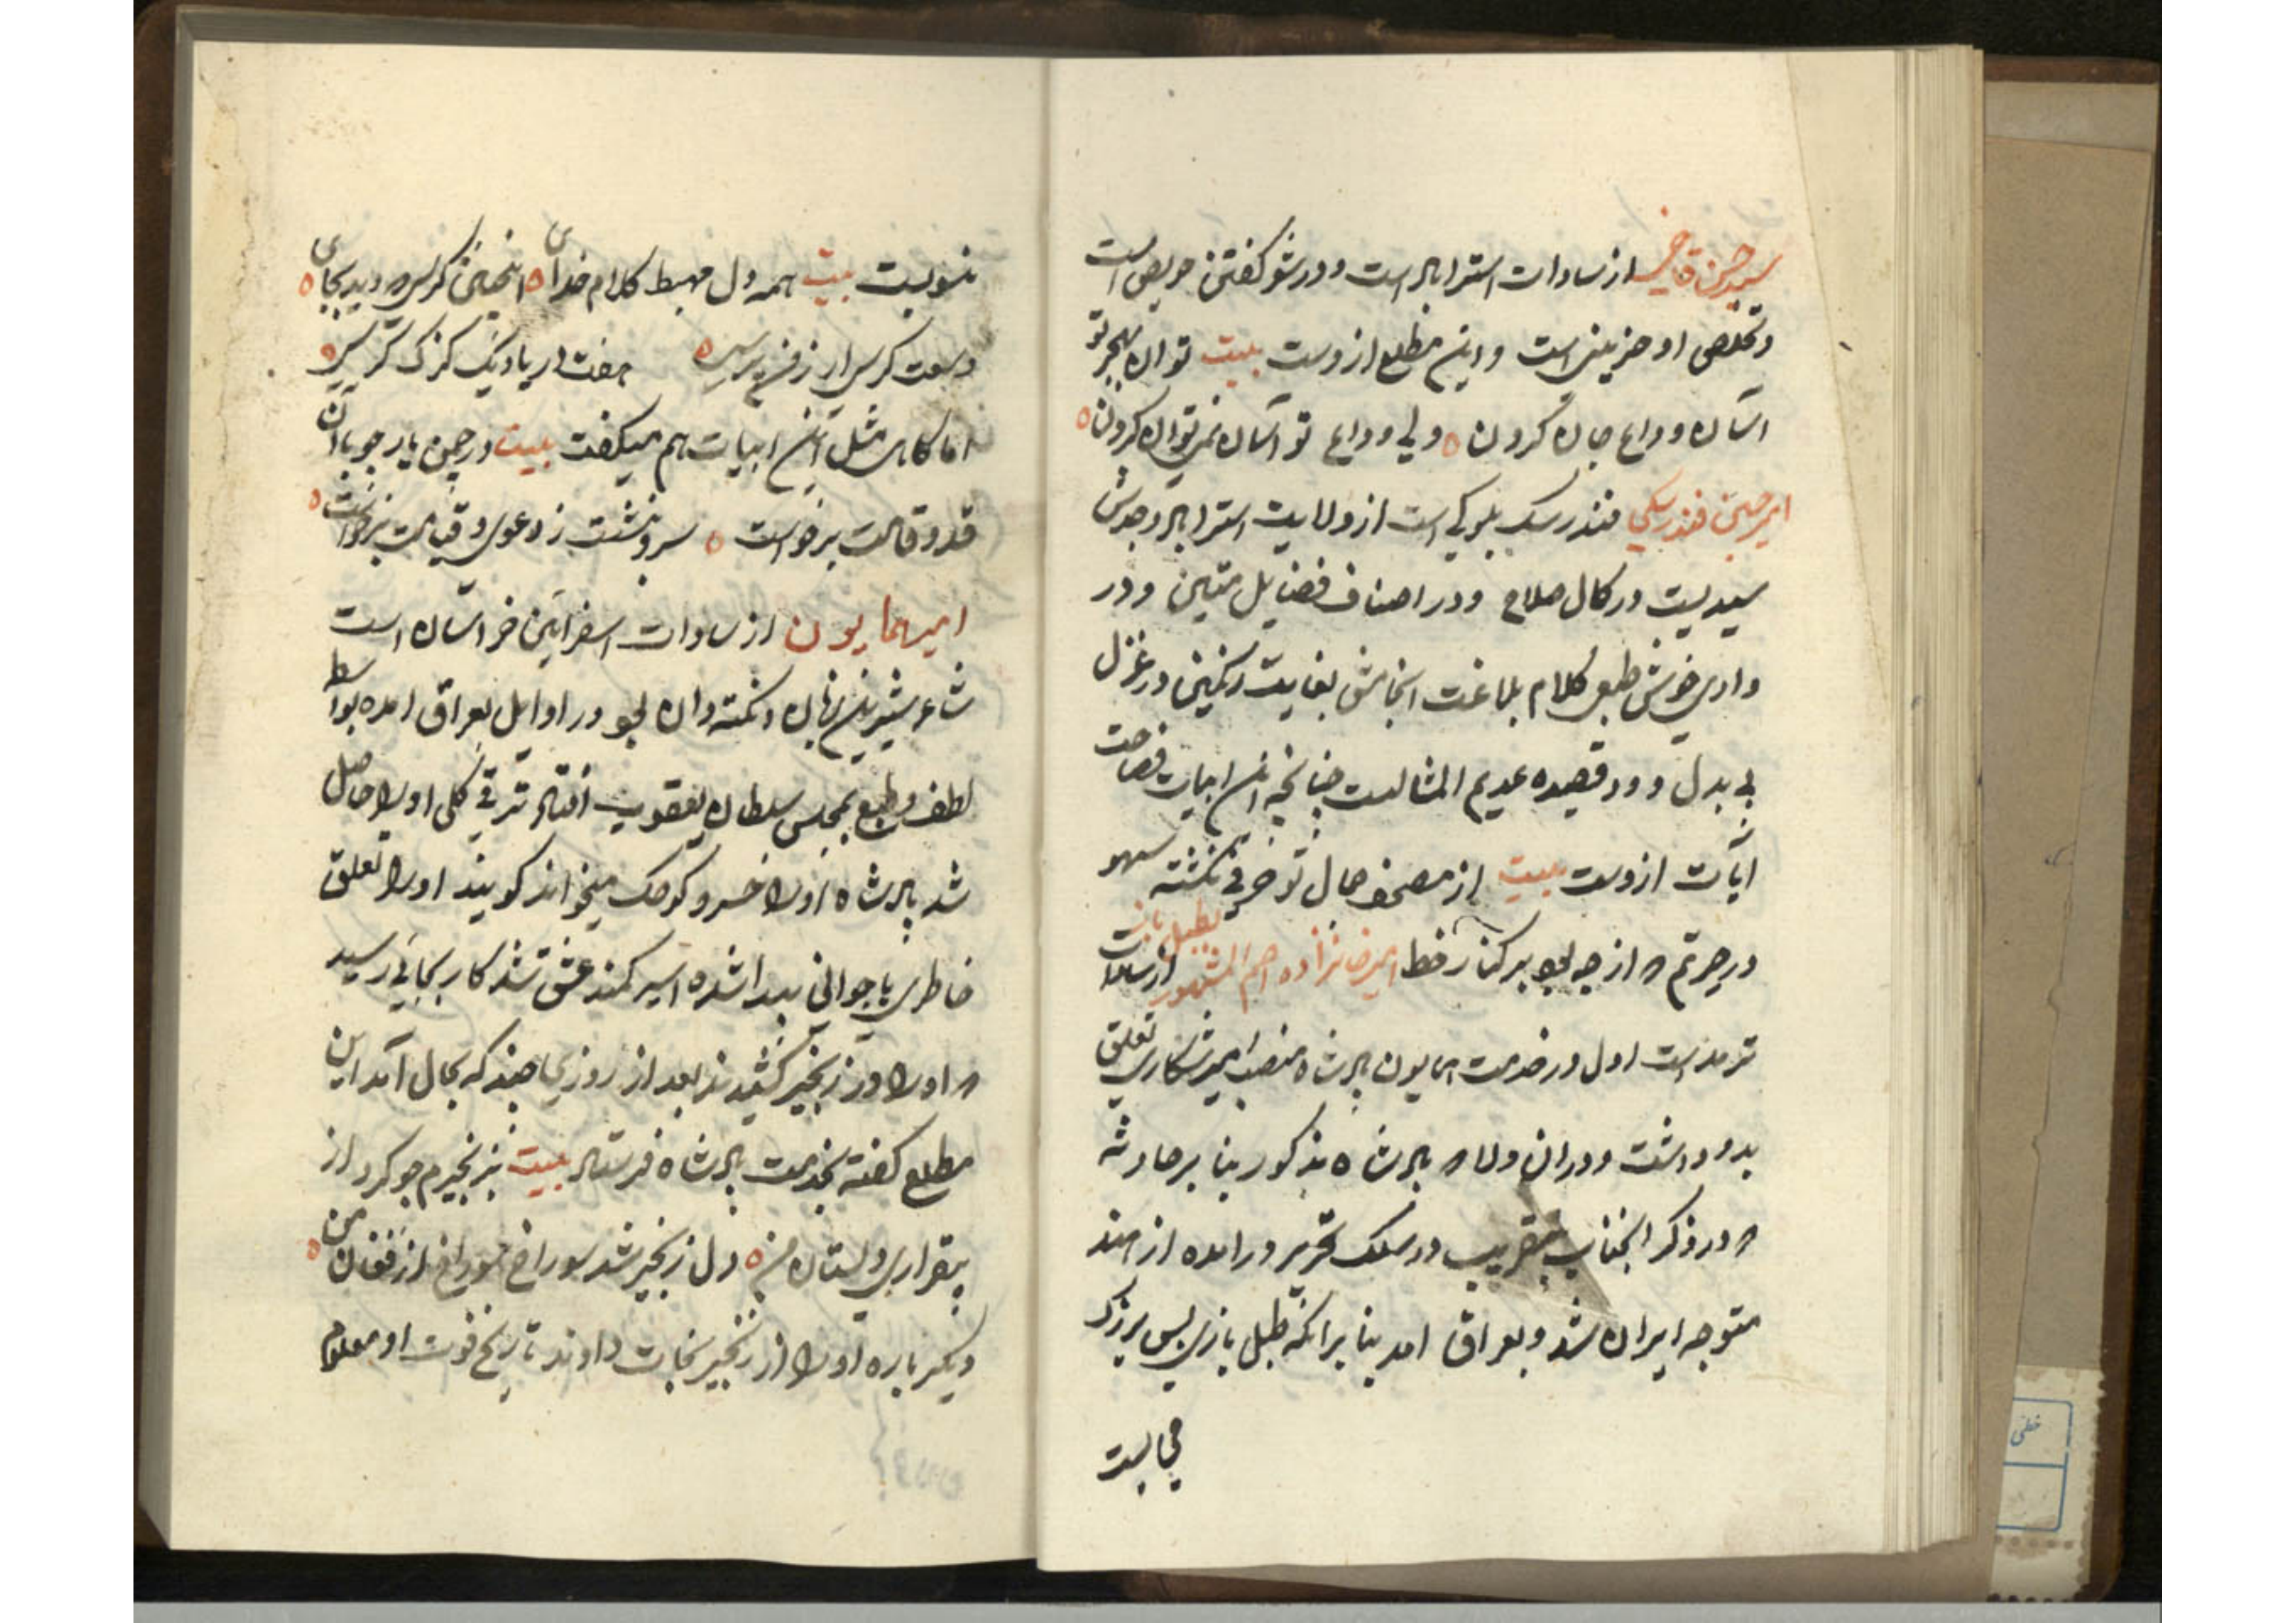 سید حسن قاضی از سادات استراباد است و در شعر گفتن حریص است
و تخلص او حزینی است و این مطلع ازوست بیت توان بهجر تو
آسان وداع جان کردن ولی وداع تو آسان نمی توان کردن
امیر حسین فندرسکی فندرسک بلوکی است از ولایت استراباد وجودش
سیدیست در کمال صلاح و در اصناف فضایل متین و در
وادی خوش طبعی کلام بلاغت انجامش بغایت رنگین در غزل
بی بدل و در قصیده عدیم المثالست چنانچه این ابیات فصاحت
آیات ازوست بیت از مصحف جمال تو حرفی نگشته سهو
در حیرتم که از چه بود بر کنار خط امیر خانزاده اسم المشهور بطبل باز از سادات
ترمدست اول در خدمت همایون پادشاه منصب میر شکاری تعلق
بدو داشت و در ان ولا که پادشاه مذکور بنا بر حادثه
که در ذکر آنجناب بتقریب در سلک تحریر در امده از هند
متوجه ایران شد و بعراق امد بنا بر انکه طبل بازی بس بزرک
می بست
نسویست بیت همه دل مهبط کلام خدای اینچنین کرسی که دید بجای
وسعت کرسی ار ز من پرسی هفت دریا و یک کزک کرسی
اما کاهی مثل این ابیات هم میکفت بیت در چمن یار چو با آن
قد و قامت برخواست سرو بنشست ز دعوی و قیامت برخواست
امیر همایون از سادات اسفراین خراسان است
شاعر شیرین زبان و نکته دان بود در اوایل بعراق امده بواسطه
لطف طبع بمجلس سلطان یعقوب افتاد ترقی کلی او را حاصل
شد پادشاه او را خسرو کوچک میخواند کویند او را تعلق
خاطری با جوانی پیدا شده اسیر کمند عشق شد کار بجائی رسید
که او را در زنجیر کشیدند بعد از روزی چند که بحال آمد این
مطلع گفته بخدمت پادشاه فرستاد بیت بزنجیرم چو کرد از
بیقراری دلستان من دل زنجیر شد سوراخ سوراخ از فغان من
دیگر باره او را از زنجیر نجات دادند تاریخ فوت او معلوم
خطی